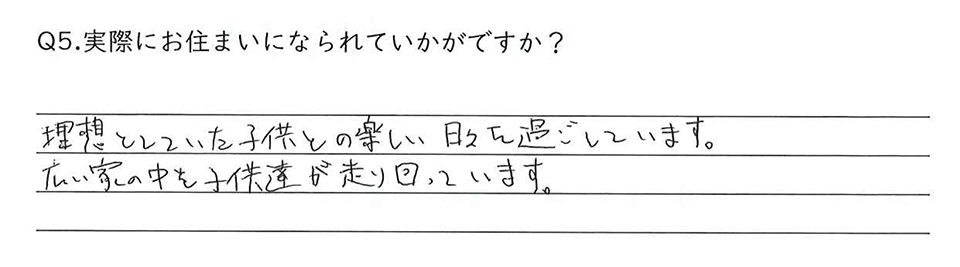 Q5.実際にお住まいになられていかがですか？
理想としていた子供との楽しい日々を過ごしています。
広い家の中を子供達が走り回っています。